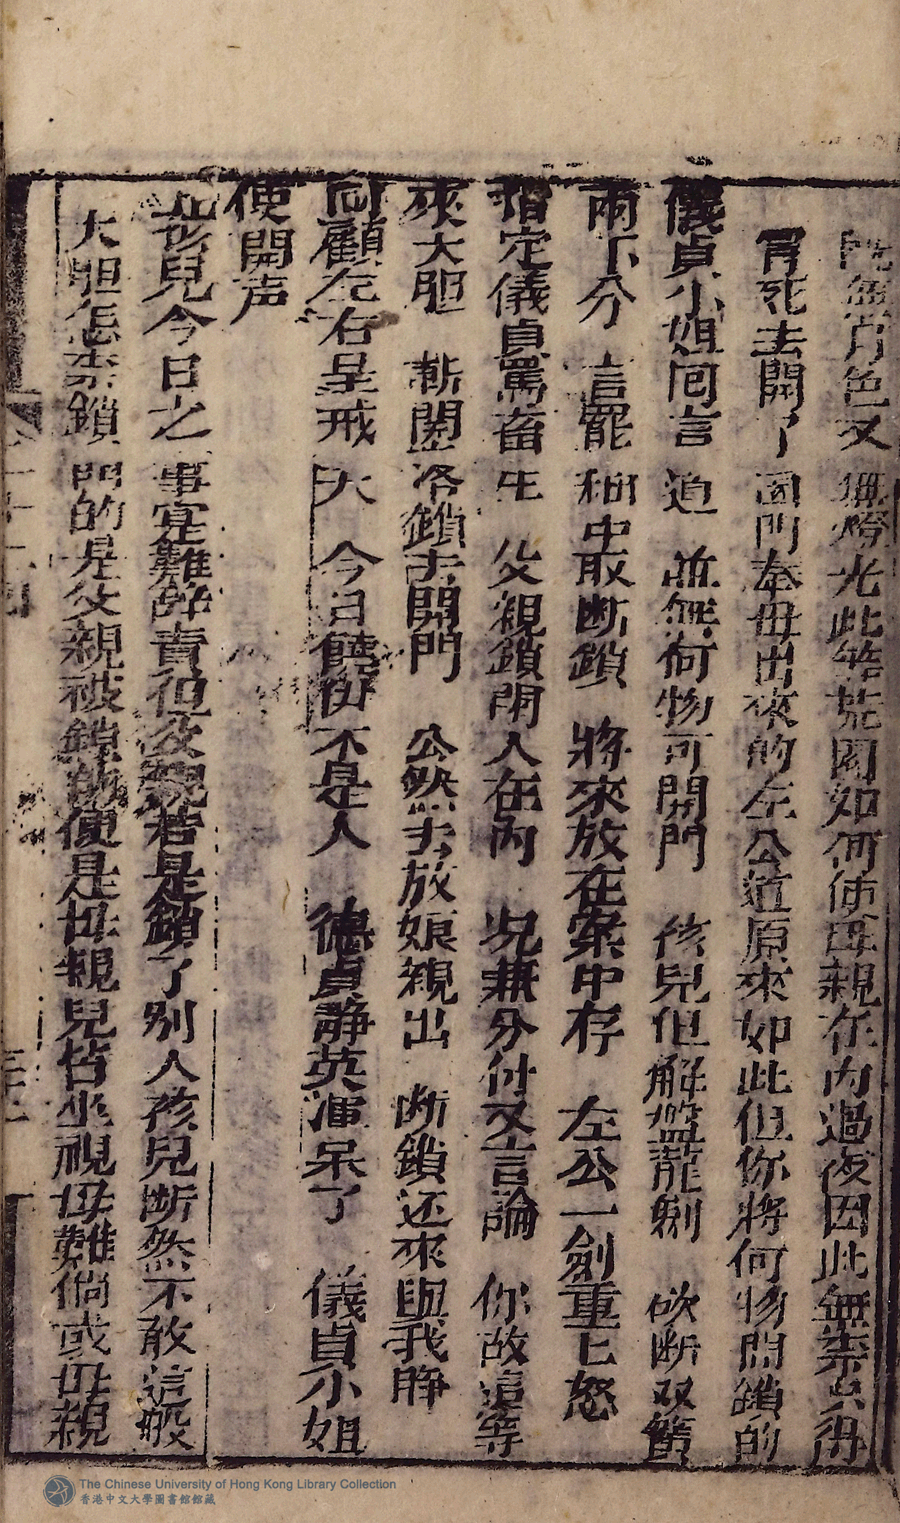 既無月色又無燈光此等荒園如何使母親在內過夜因此無柰只得
冒死去開了園門奉母出來的左公道原來如此但你將何物開鎖的
儀貞小姐回言道 並無何物可開門 孩兒但解盤龍劍 砍斷双簧
兩下分 言罷袖中取断鎖 將來放在案中存 左公一劍重匕怒
指定儀貞罵畜生 父親鎖閉人在內 况兼分付又言論 你敢這等
來大胆 斬関落鎖去開門 公然去放娘親出 断鎖还來與我睜
回顧左右呈戒 大 今日饒伊不是人 德貞靜英渾呆了 儀貞小姐
便開声
孩兒今日之事寔難辞責但父親若是鎖了別人孩兒断然不敢這般
大胆怎柰鎖門的是父親被鎖的便是母親兒皆坐視母難倘或母親
The Chinese University of Hong Kong Library Collection
香港中文大學圖書館館藏